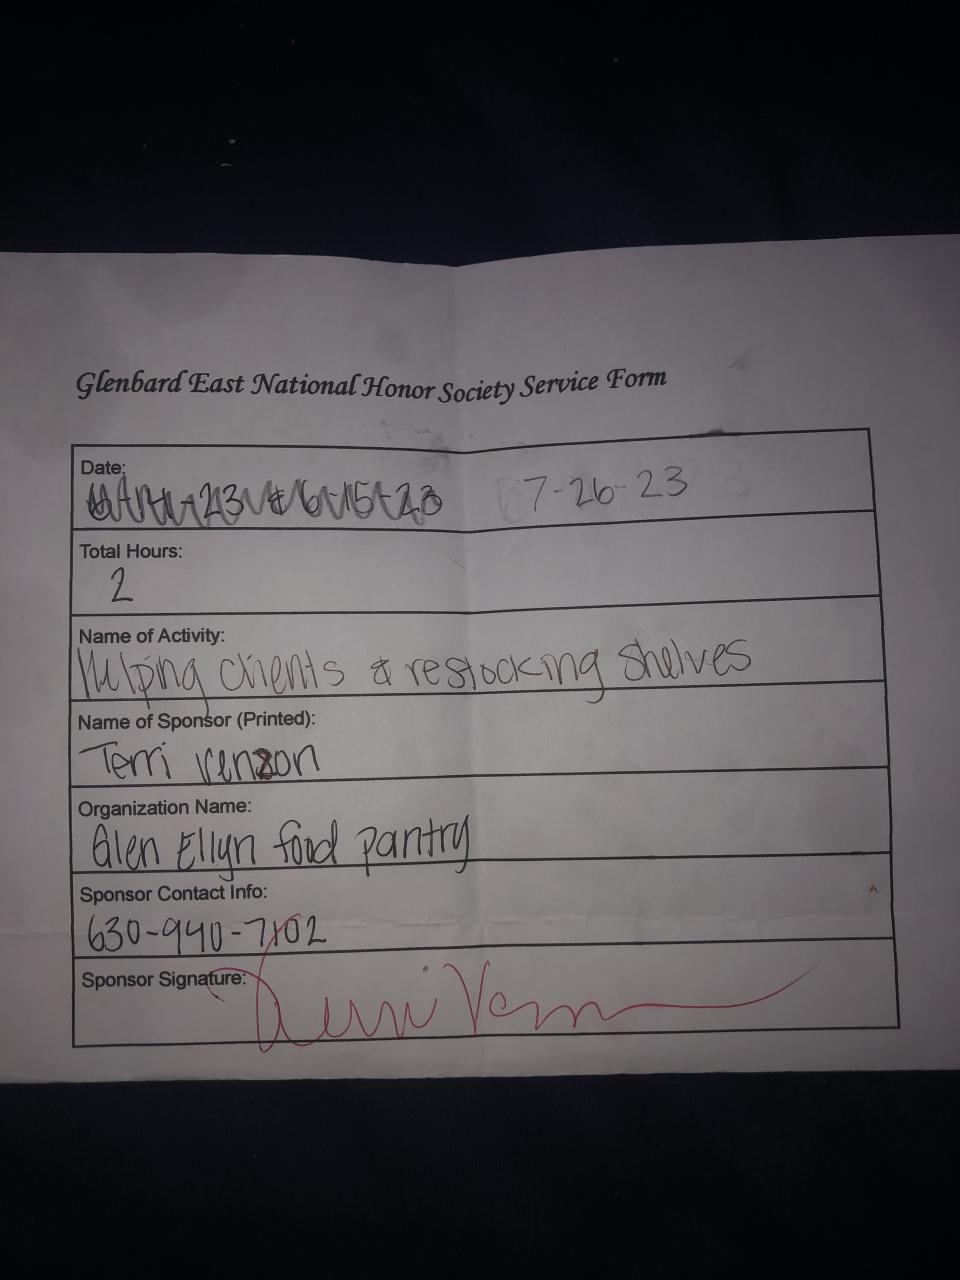 Glenbard East National Honor Society Service Form
Date:
-23 & 6-15-23 7-26-23
Total Hours:
2
Name of Activity:
Helping clients & restocking shelves
Name of Sponsor (Printed):
Terri Venzon
Organization Name:
Glen Ellyn food pantry
Sponsor Contact Info:
630-940-7102
Sponsor Signature:
Terri Ven